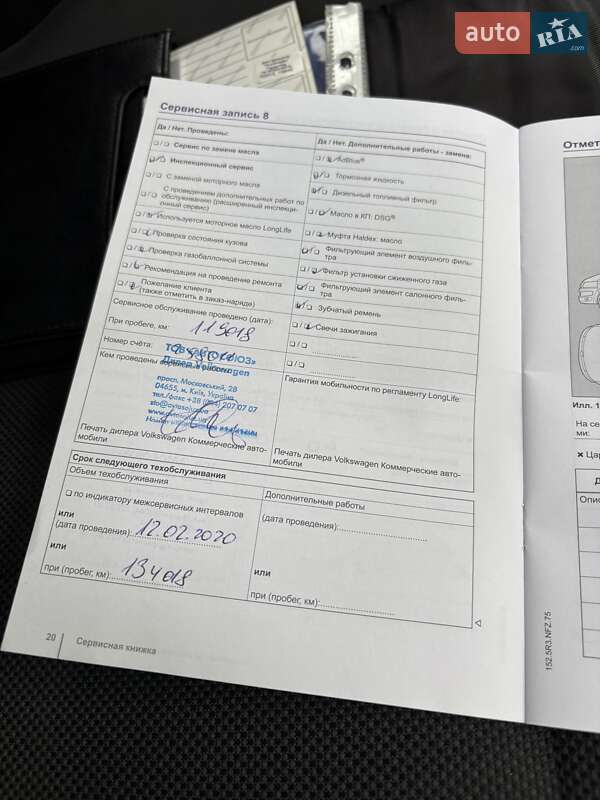 auto RIA.com
Сервисная запись 8
Да / Нет. Проведены:
Сервис по замене масла
Инспекционный сервис
С заменой моторного масла
С проведением дополнительных работ по обслуживанию (расширенный инспекционный сервис)
Используется моторное масло LongLife
Проверка состояния кузова
Проверка газобаллонной системы
Рекомендация на проведение ремонта
Пожелание клиента
(также отметить в заказ-наряде)
Сервисное обслуживание проведено (дата):
При пробеге, км: 119018
Номер счёта:
Кем проведены
ТОВ «АВТОСОЮЗ»
Дилер Volkswagen
просп. Московський, 28
04655, м. Київ, Україна
207 07 07
Печать дилера Volkswagen Коммерческие автомобили
Да / Нет. Дополнительные работы - замена:
AdBlue®
Тормозная жидкость
Дизельный топливный фильтр
Масло в КП: DSG®
Муфта Haldex: масло
Фильтрующий элемент воздушного фильтра
Фильтр установки сжиженного газа
Фильтрующий элемент салонного фильтра
Зубчатый ремень
Свечи зажигания
Гарантия мобильности по регламенту LongLife:
Печать дилера Volkswagen Коммерческие автомобили
Срок следующего техобслуживания
Объем техобслуживания
по индикатору межсервисных интервалов
или
(дата проведения): 12.02.2020
или
при (пробег, км): 134018
Дополнительные работы
(дата проведения):
или
при (пробег, км):
20
Сервисная книжка
152.5R3.NFZ.75
Отмет
Илл. 1
На се
ми:
Цар
Опис